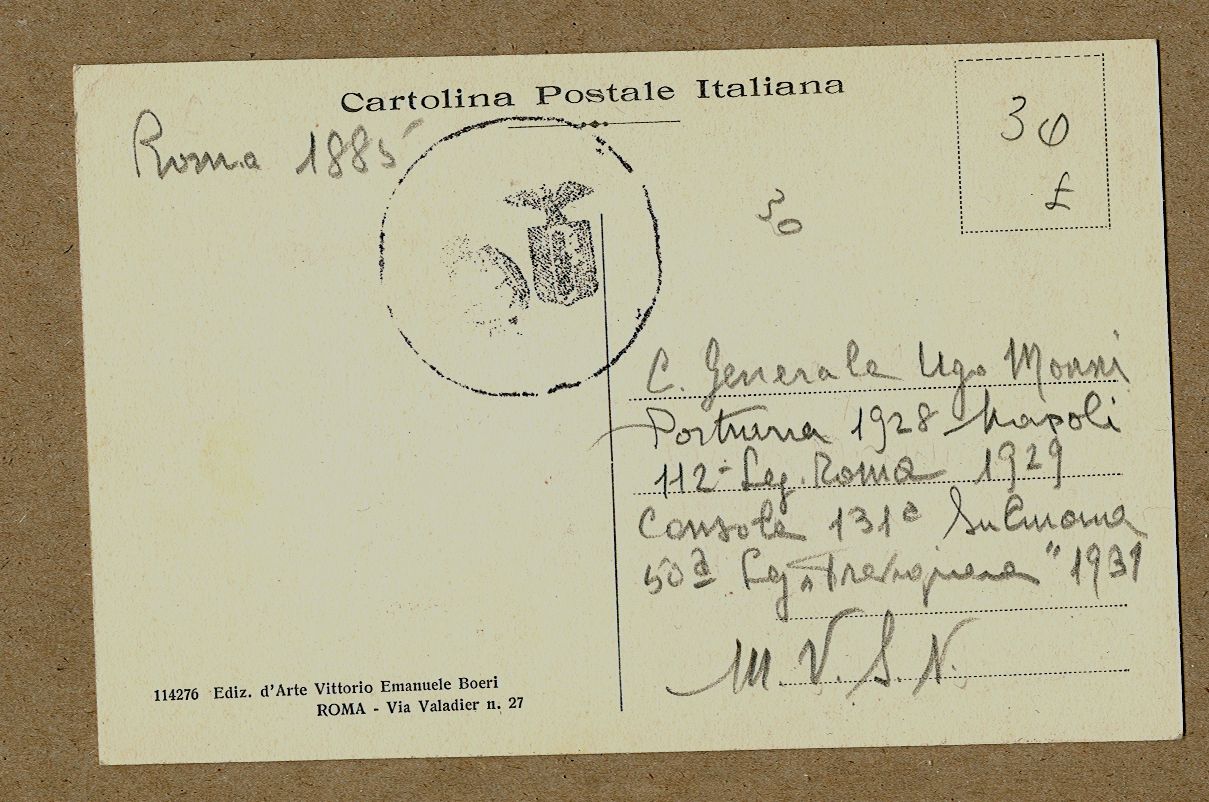 Cartolina Postale Italiana
Roma 1885
30
£
30
C. Generale Ugo Monni
Porturia 1928 Napoli
112- Leg. Roma 1929
Console 131ª Sulmona
50ª Leg "Trevigiana" 1931
M.V.S.N.
114276 Ediz. d'Arte Vittorio Emanuele Boeri
ROMA - Via Valadier n. 27